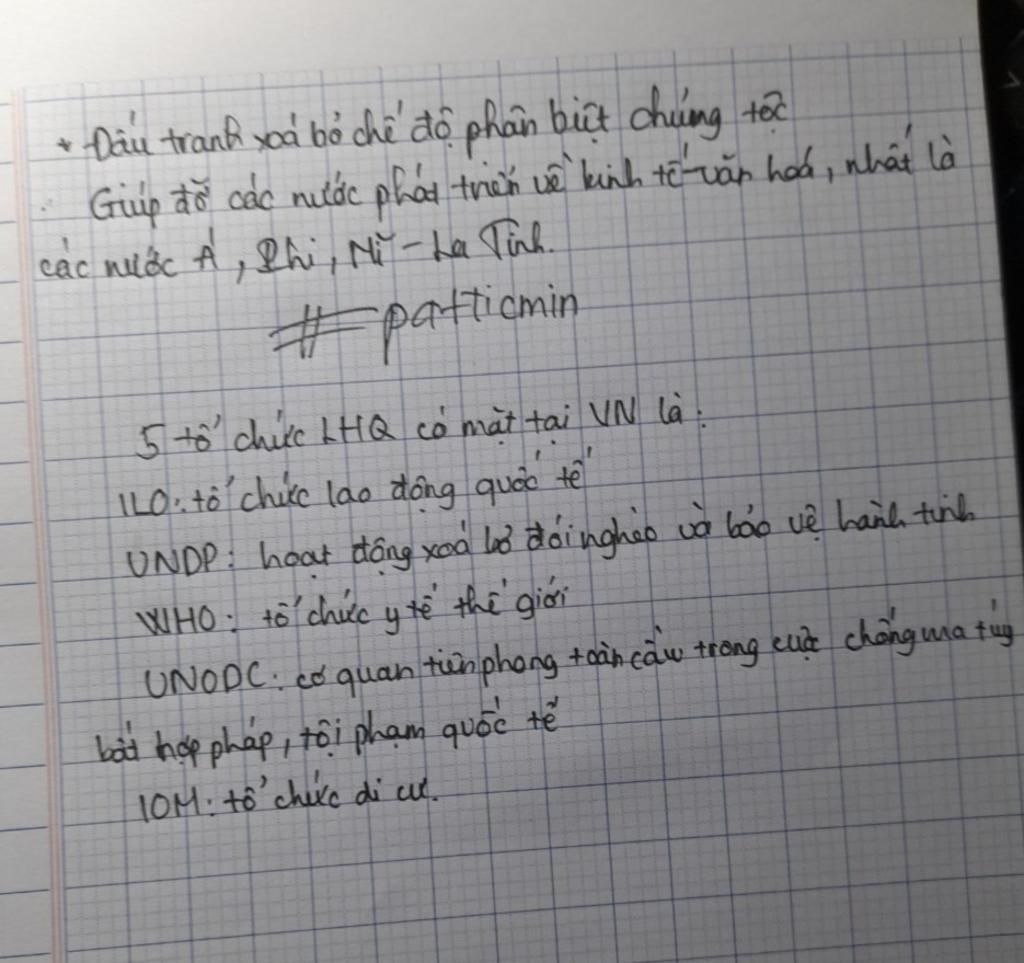 * Đấu tranh xoá bỏ chế độ phân biệt chủng tộc
Giúp đỡ các nước phát triển về kinh tế-văn hoá, nhất là
các nước Á, Phi, Mĩ-La Tinh.
#patticmin
5 tổ chức LHQ có mặt tại VN là:
ILO: tổ chức lao động quốc tế
UNDP: hoạt động xoá bỏ đói nghèo và bảo vệ hành tinh
WHO: tổ chức y tế thế giới
UNODC: cơ quan tiên phong toàn cầu trong cuộc chống ma túy
bất hợp pháp, tội phạm quốc tế
IOM: tổ chức di cư.